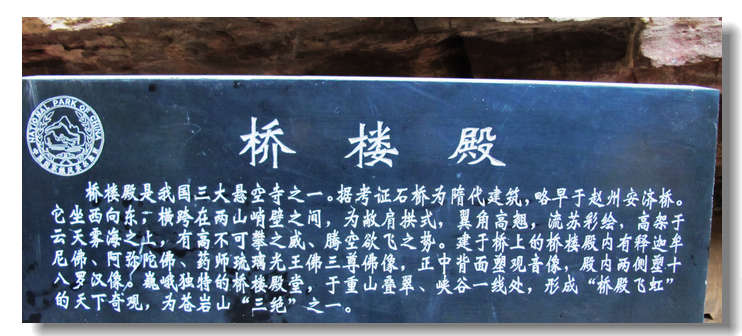 NATIONAL PARK OF CHINA
桥楼殿
桥楼殿是我国三大悬空寺之一。据考证石桥为隋代建筑，略早于赵州安济桥。
它坐西向东，横跨在两山峭壁之间，为敞肩拱式，翼角高翘，流苏彩绘，高架于
云天雾海之上，有高不可攀之威、腾空欲飞之势。建于桥上的桥楼殿内有释迦牟
尼佛、阿弥陀佛、药师琉璃光王佛三尊佛像，正中背面塑观音像，殿内两侧塑十
八罗汉像。巍峨独特的桥楼殿堂，于重山叠翠、峡谷一线处，形成“桥殿飞虹”
的天下奇观，为苍岩山“三绝”之一。